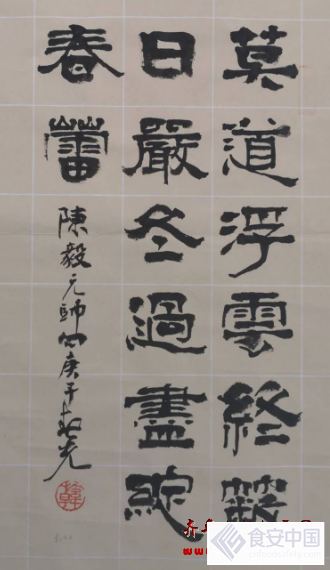 莫道浮雲終蔽
日嚴冬過盡綻
春蕾
陳毅元帥句庚子
食安中国